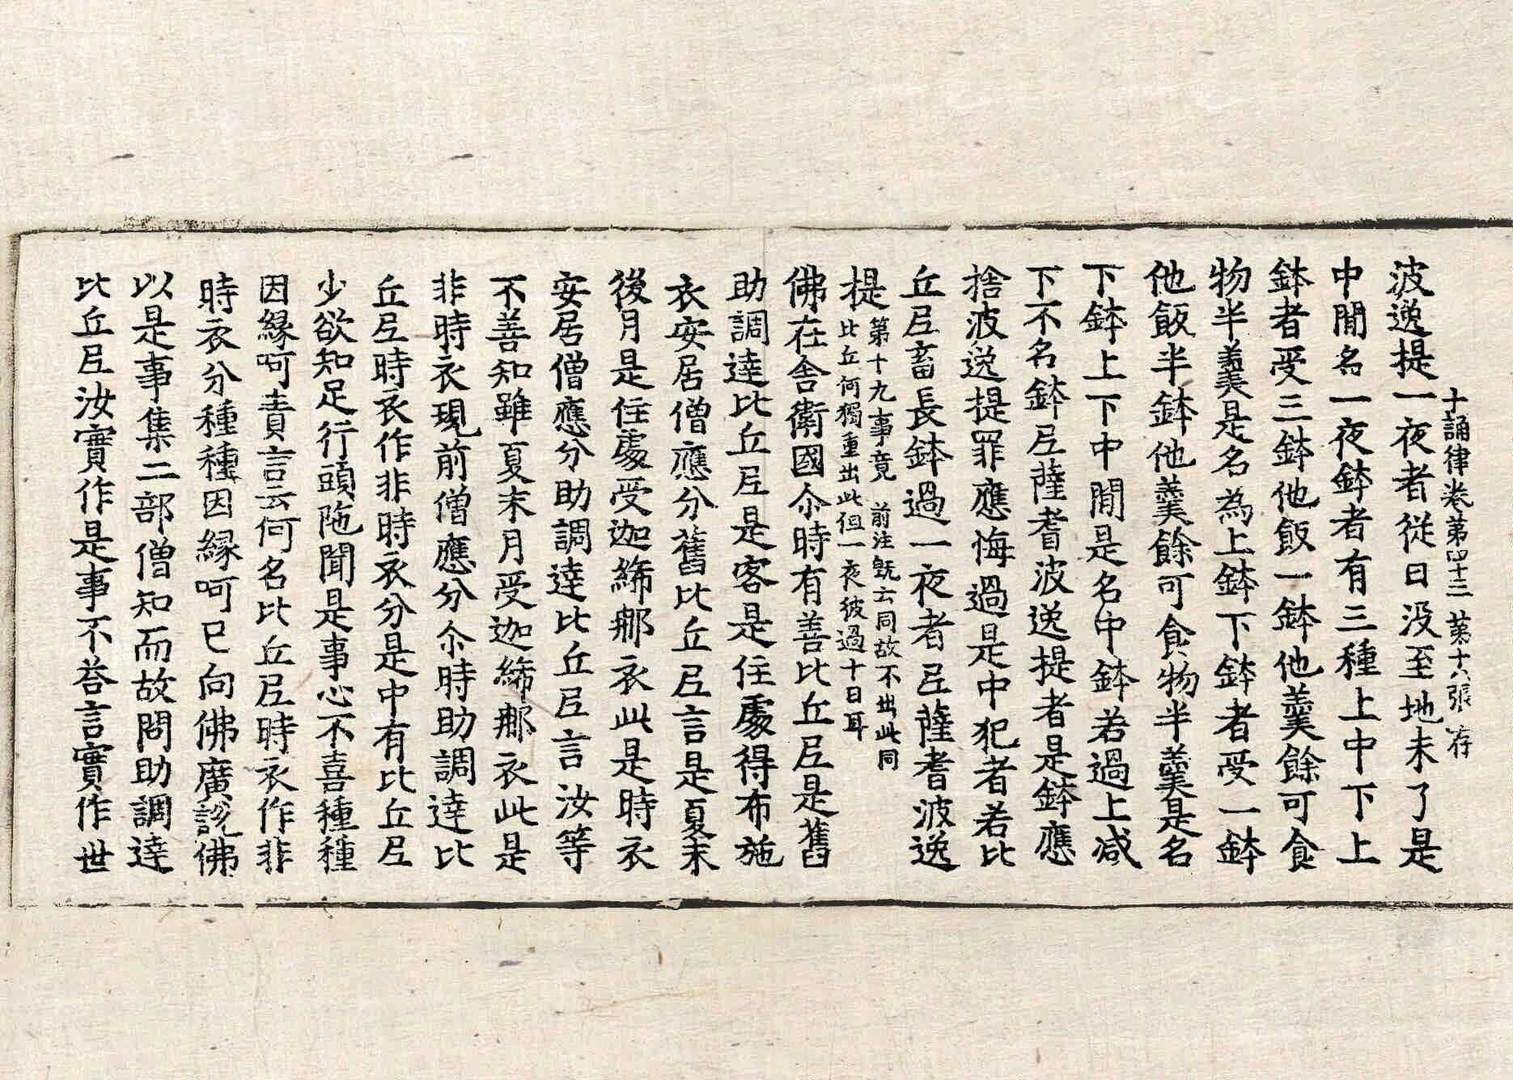 十誦律卷第四十三 第十六張 存
波逸提一夜者從日没至地未了是
中間名一夜鉢者有三種上中下上
鉢者受三鉢他飯一鉢他羹餘可食
物半羹是名為上鉢下鉢者受一鉢
他飯半鉢他羹餘可食物半羹是名
下鉢上下中間是名中鉢若過上减
下不名鉢尼薩耆波逸提者是鉢應
捨波逸提罪應悔過是中犯者若比
丘尼畜長鉢過一夜者尼薩耆波逸
提第十九事竟 前注既云同故不出此同
比丘何獨重出此但一夜彼過十日耳
佛在舎衛國尒時有善比丘尼是舊
助調逹比丘尼是客是住處得布施
衣安居僧應分舊比丘尼言是夏末
後月是住處受迦絺那衣此是時衣
安居僧應分助調逹比丘尼言汝等
不善知雖夏末月受迦絺那衣此是
非時衣現前僧應分尒時助調逹比
丘尼時衣作非時衣分是中有比丘尼
少欲知足行頭陁聞是事心不喜種種
因緣呵責言云何名比丘尼時衣作非
時衣分種種因緣呵已向佛廣説佛
以是事集二部僧知而故問助調逹
比丘尼汝實作是事不荅言實作世